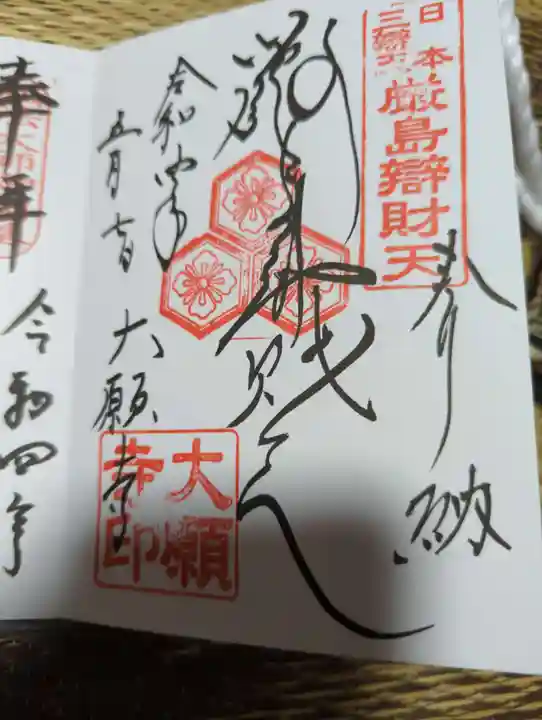 日本
三辯天
厳島辯財天
奉納
厳島辯財天
令和四年
五月七日
大願寺
大願
寺印
奉拝
令和四年